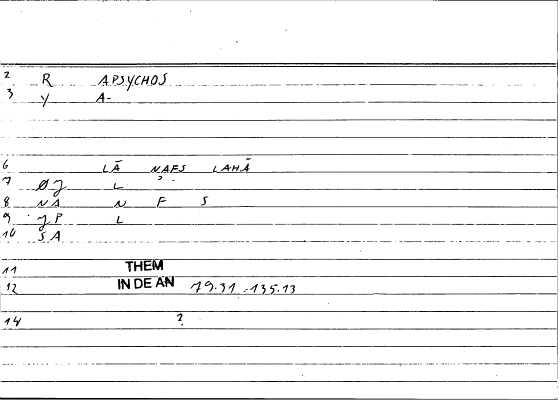 2 R APSYCHOS
3 Y A-
6 LĀ NAFS LAHĀ
7 ØJ L
8 NA N F S
9 JP L
10 SA
11 THEM
12 IN DE AN 79.31 135.13
14 ?